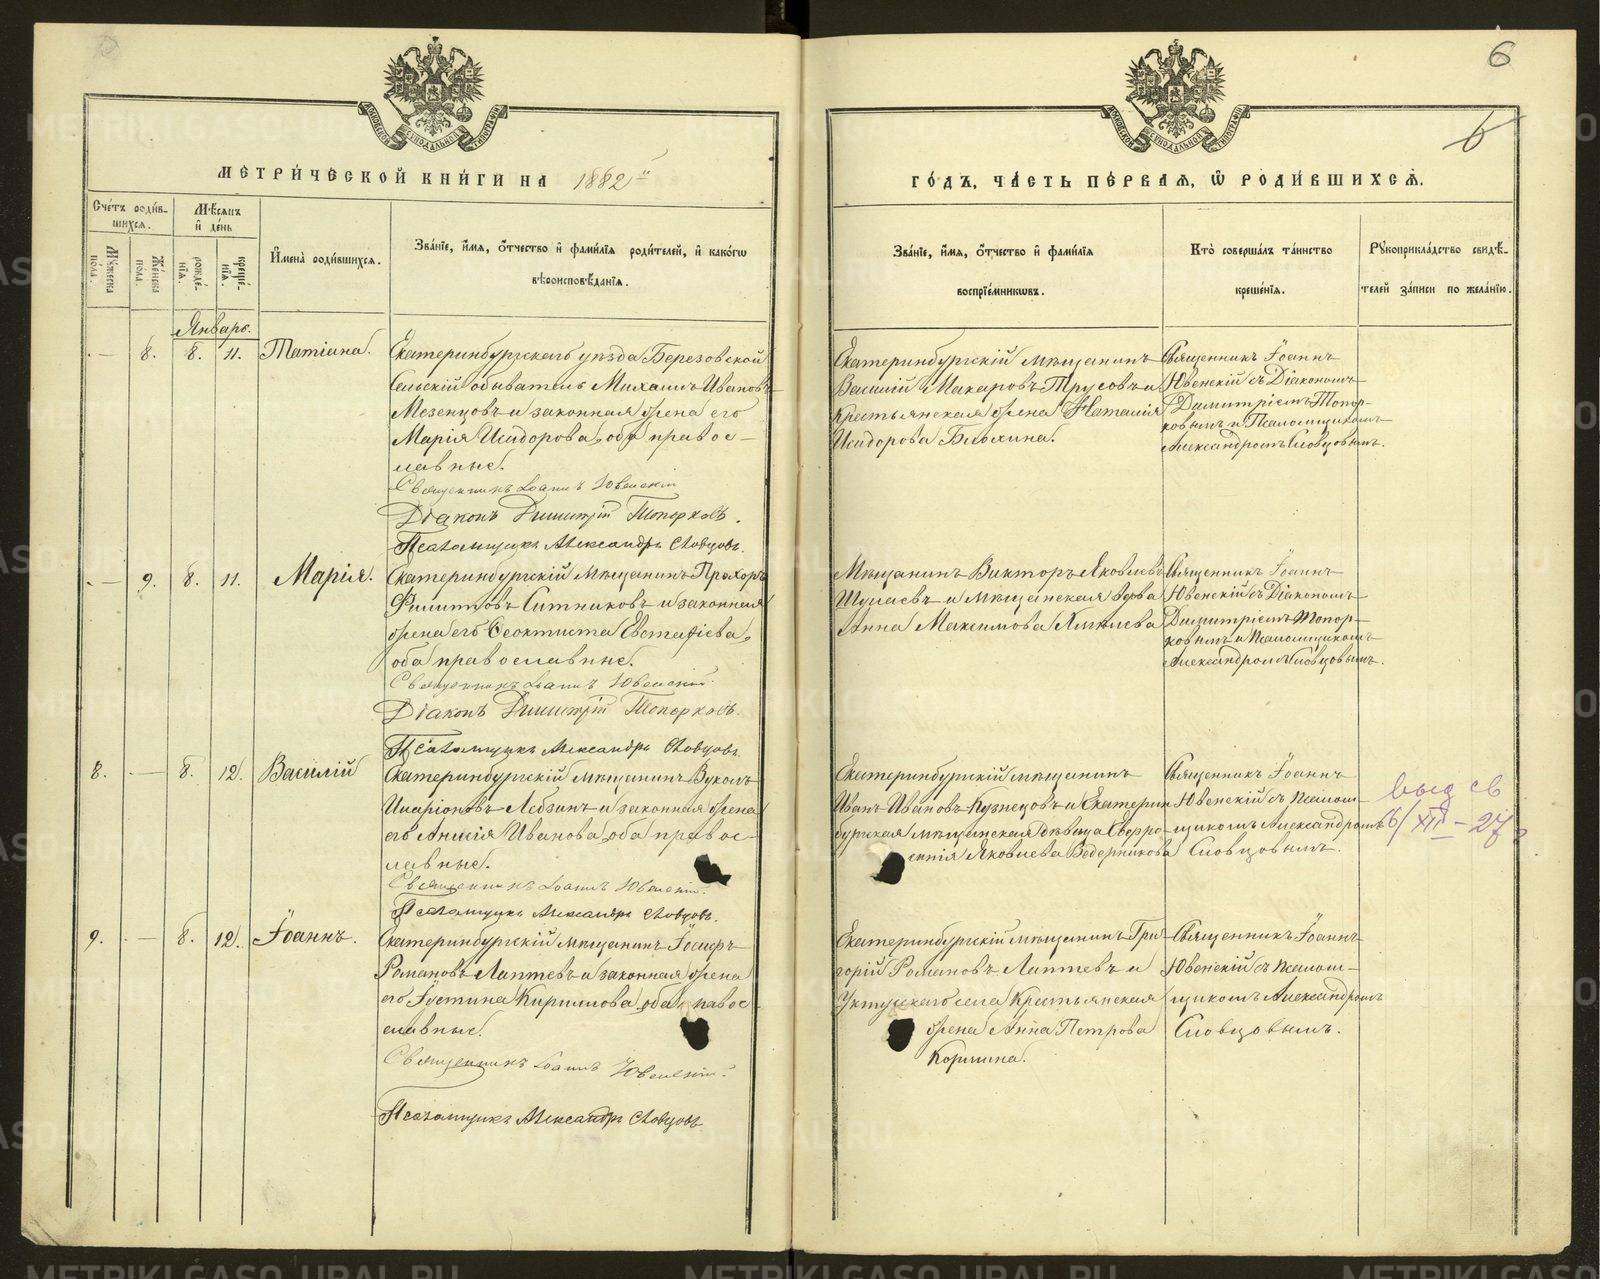 6
6
МЕТРИЧЕСКОЙ КНИГИ НА 1882й
ГОДЪ, ЧАСТЬ ПЕРВАЯ, Ѡ РОДИВШИХСЯ.
Счетъ родив-
шихся.
Мужеска пола.
Женска пола.
Мѣсяцъ и день
рожде-нія.
креще-нія.
Имена родившихся.
Званіе, имя, отчество и фамилія родителей, и какогѡ
вѣроисповѣданія.
Званіе, имя, отчество и фамилія
воспріемниковъ.
Кто совершалъ таинство
крещенія.
Рукоприкладство свидѣ-
телей записи по желанію.
Январь.
— 8. 8. 11. Татіана.
Екатеринбургскаго уѣзда Березовской
Сельскій обыватель Михаилъ Ивановъ
Мезенцовъ и законная жена его
Марія Исидорова, оба правос-
лавные.
Священникъ Іоаннъ Ювенскій
Діаконъ Димитрій Топорковъ.
Псаломщикъ Александръ Словцовъ.
Екатеринбургскій мѣщанинъ
Василій Макаровъ Трусовъ и
крестьянская жена Наталія
Исидорова Блохина.
Священникъ Іоаннъ
Ювенскій съ Діакономъ
Димитріемъ Топор-
ковымъ и Псаломщикомъ
Александромъ Словцовымъ.
— 9. 8. 11. Марія.
Екатеринбургскій мѣщанинъ Прохоръ
Филитовъ Ситниковъ и законная
жена его Феоктиста Евстафіева,
оба православные.
Священникъ Іоаннъ Ювенскій.
Діаконъ Димитрій Топорковъ.
Псаломщикъ Александръ Словцовъ.
Мѣщанинъ Викторъ Яковлевъ
и мѣщанская вдова
Анна Максимова
Священникъ Іоаннъ
Ювенскій съ Діакономъ
Димитріемъ Топор-
ковымъ и Псаломщикомъ
Александромъ Словцовымъ.
8. — 8. 12. Василій
Екатеринбургскій мѣщанинъ Вуколъ
Иларіоновъ Лебзинъ и законная жена
его Анисія Иванова, оба правос-
лавные.
Священникъ Іоаннъ Ювенскій.
Псаломщикъ Александръ Словцовъ.
Екатеринбургскій мѣщанинъ
Иванъ Ивановъ Кузнецовъ и Екатерин
бургская мѣщанская дѣвица Евфро-
синія Яковлева Ведерникова
Священникъ Іоаннъ
Ювенскій съ Псалом-
щикомъ Александромъ
Словцовымъ.
выд св
6/XII-27 г
9. — 8. 12. Іоаннъ.
Екатеринбургскій мѣщанинъ Іосифъ
Романовъ Лаптевъ и законная жена
его Іустина Кириллова, оба правос-
лавные.
Священникъ Іоаннъ Ювенскій.
Псаломщикъ Александръ Словцовъ
Екатеринбургскій мѣщанинъ Гри-
горій Романовъ Лаптевъ и
Уктусскаго села Крестьянская
жена Анна Петрова
Кормина.
Священникъ Іоаннъ
Ювенскій съ Псалом-
щикомъ Александромъ
Словцовымъ.
METRIKI.GASO-URAL.RU